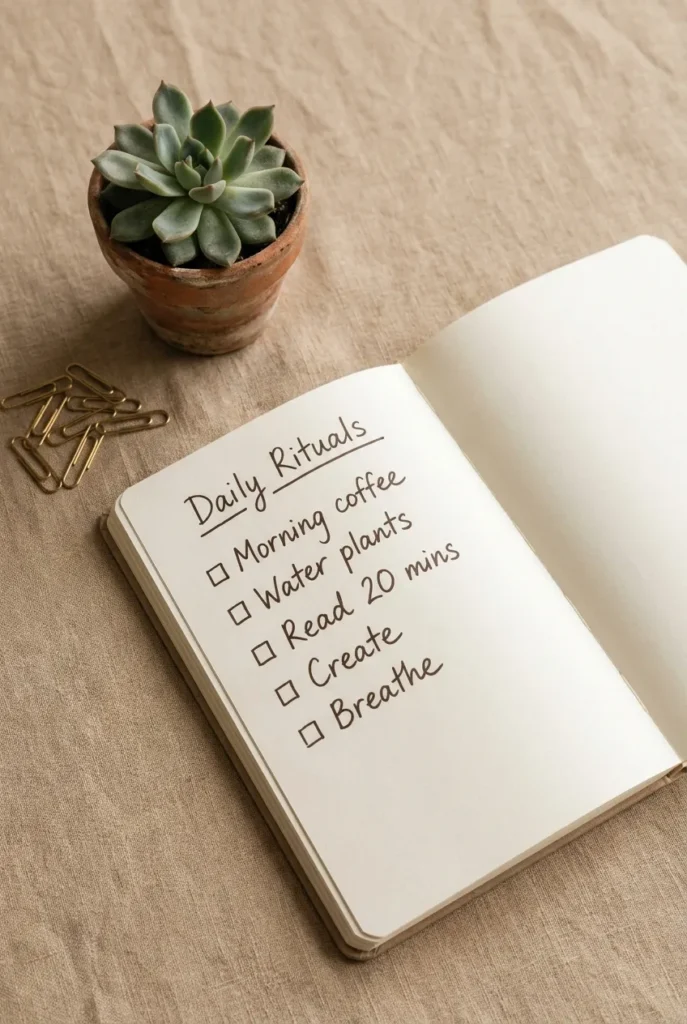 Daily Rituals
☐ Morning coffee
☐ Water plants
☐ Read 20 mins
☐ Create
☐ Breathe